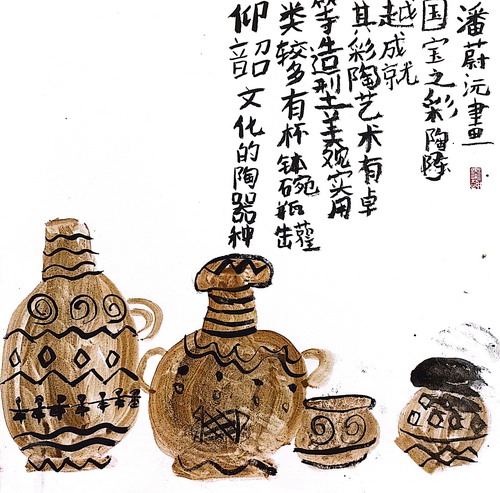 仰韶文化的陶器种
类较多有杯钵碗瓶罐
等造型土美观实用
其彩陶艺术有卓
越成就
国宝之彩陶
潘蔚沅畫